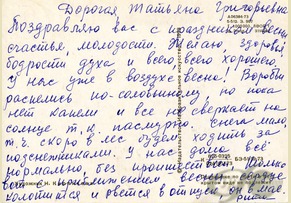 Дорогая Татьяна Григорьевна
Поздравляю вас с праздником весны
счастья, молодости. Желаю, здоровья
бодрости духа и всего всего хорошего.
У нас уже в воздухе весна! Воробьи
распелись по-соловьиному, но пока
нет капели и все сверкает на
солнце т.к. пасмурно. Снега мало,
т.ч. скоро в лес будем ходить за
подснежниками. У нас дома всё
нормально, без происшествий. Только
вот с приближением весны сердце
колотится и рвется в отпуск, а у нас